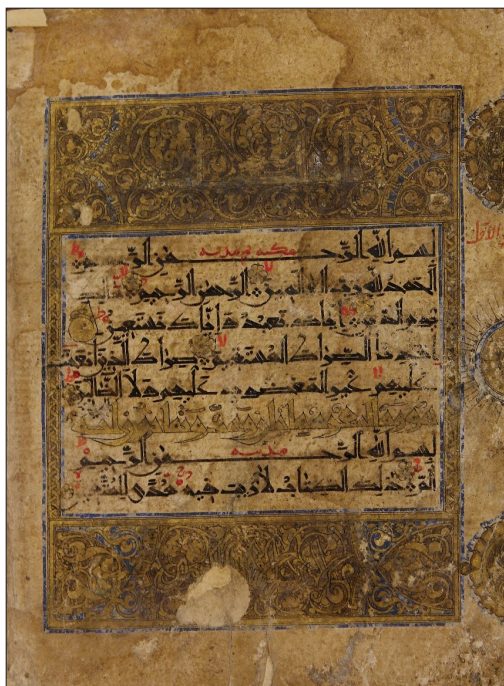 مدنيه
بسم الله الرحمن الرحيم
الحمد لله رب العالمين الرحمن الرحيم مالك
يوم الدين اياك نعبد واياك نستعين
اهدنا الصراط المستقيم صراط الذين انعمت
عليهم غير المغضوب عليهم ولا الضالين
سورة البقرة
مدنيه
بسم الله الرحمن الرحيم
الم ذلك الكتاب لا ريب فيه هدى للمتقين